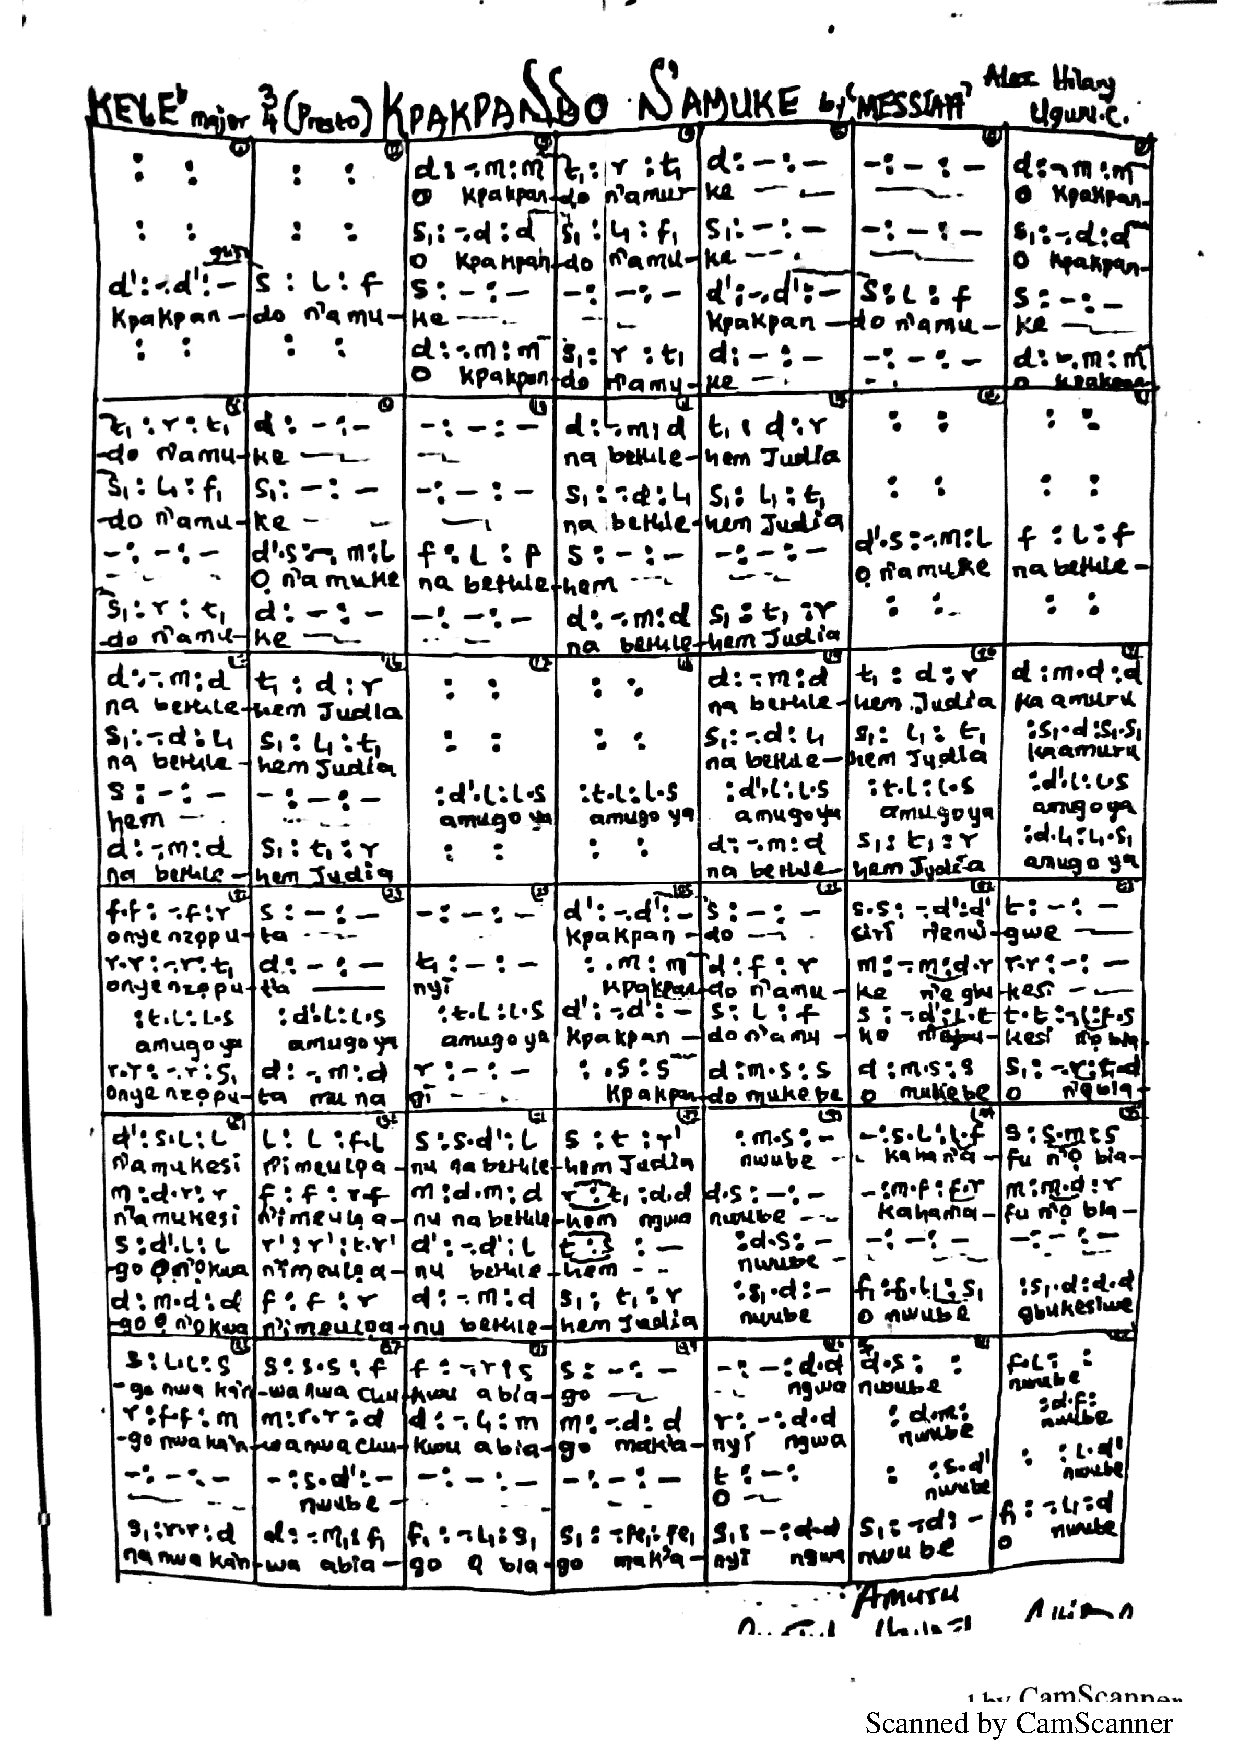 KELE♭ major 3/4 (Presto) KPAKPANDO N'AMUKE by "MESSIAH" Alex Hilary Uguru.C.
: : | : : | d:-.m:m | t₁:r:t₁ | d:-:- | -:-:- | d:-.m:m
O Kpakpan- | do n'amu | ke — | O Kpakpan-
: : | : : | s₁:-.d:d | s₁:l₁:f₁ | s₁:-:- | -:-:- | s₁:-.d:d
O Kpakpan- | do n'amu- | ke — | O Kpakpan-
d':-.d':- | s:l:f | s:-:- | -:-:- | d':-.d':- | s:l:f | s:-:-
Kpakpan- | do n'amu- | ke — | Kpakpan- | do n'amu- | ke —
: : | : : | d:-.m:m | s₁:r:t₁ | d:-:- | -:-:- | d:-.m:m
O Kpakpan- | do n'amu- | ke — | O Kpakpan-
t₁:r:t₁ | d:-:- | -:-:- | d:-.m:d | t₁:d:r | : : | : :
-do n'amu- | ke — | na bethle- | hem Judia
s₁:l₁:f₁ | s₁:-:- | -:-:- | s₁:-.d:l₁ | s₁:l₁:t₁ | : : | : :
-do n'amu- | ke — | na bethle- | hem Judia
-:-:- | d'.s:-.m:l | f:l:f | s:-:- | -:-:- | d'.s:-.m:l | f:l:f
Ọ n'amuke | na bethle- | hem — | Ọ n'amuke | na bethle-
s₁:r:t₁ | d:-:- | -:-:- | d:-.m:d | s₁:t₁:r | : : | : :
-do n'amu- | ke — | na bethle- | hem Judia
d:-.m:d | t₁:d:r | : : | : : | d:-.m:d | t₁:d:r | d:m.d:d
na bethle- | hem Judia | na bethle- | hem Judia | ka amuru
s₁:-.d:l₁ | s₁:l₁:t₁ | : : | : : | s₁:-.d:l₁ | s₁:l₁:t₁ | :s₁.d:s₁.s₁
na bethle- | hem Judia | na bethle- | hem Judia | kaamuru
s:-:- | -:-:- | :d'.l:l.s | :t.l:l.s | :d'.l:l.s | :t.l:l.s | :d'.l:l.s
hem — | amugo ya | amugo ya | amugoya | amugoya | amugoya
d:-.m:d | s₁:t₁:r | : : | : : | d:-.m:d | s₁:t₁:r | :d.l₁:l₁.s₁
na bethle- | hem Judia | na bethle- | hem Judia | amugo ya
f.f:-.f:r | s:-:- | -:-:- | d':-.d':- | s:-:- | s.s:-.d':d' | t:-:-
onye nzọpu- | ta — | Kpakpan- | do — | gwe —
r.r:-.r:t₁ | d:-:- | t₁:-:- | :.m:m | d:f:r | m:-.m:d.r | r.r:-:-
onye nzọpu- | ta — | nyi | Kpakpan- | do n'amu- | ke | kesi —
:t.l:l.s | :d'.l:l.s | :t.l:l.s | d':-.d':- | s:l:f
amugo ya | amugo ya | amugo ya | Kpakpan- | do n'amu-
r.r:-.r:s₁ | d:-.m:d | r:-:- | :.s:s | d:m.s:s | d:m.s:s
onye nzọpu- | ta | Kpakpan- | do mukebe | o mukebe | o
d':s.l:l | l:l:f.l | s:s.d':l | s:t:r' | :m.s:- | -:s.l:l.f | s:s.m:s
n'amukesi | nu na bethle- | hem Judia | nwube — | fu n'ọ bia-
m:d.r:r | f:f:r.f | m:d.m:d | d.s:-:- | -:m.f:f.r | m:m.d:r
n'amukesi | nu na bethle- | hem ngwa | nwube — | fu n'ọ bia-
s:d'.l:l | r':r':t.r' | d':-.d':l | :d.s:- | -:-:- | -:-:-
nu bethle- | hem — | nwube —
d:m.d:d | f:f:r | d:-.m:d | s₁:t₁:r | :s₁.d:- | :s₁.d:d.d
nu bethle- | hem Judia | nwube | O nwube | gbukesiwe
s:l.l:s | s:s.s:f | f:-.r:s | s:-:- | -:-:d.d | d.s: : | f.l: :
-go nwa ka'n- | wa nwa Chu- | kwu abia- | go — | ngwa | nwube | nwube
r:f.f:m | m:r.r:d | d:-.l₁:m | m:-.d:d | r:-:d.d | :d.m: | :d.f:
-go nwa ka'n- | wa nwa Chu- | kwu abia- | go maka- | nyi ngwa | nwube | nwube
-:-:- | -:s.d':- | -:-:- | -:-:- | t:-: | : :s.d' | : :l.d'
nwube - | O — | nwube | nwube
s₁:r.r:d | f₁:-.l₁:s₁ | s₁:-.fe₁:fe₁ | s₁:-:d.d
na nwa ka'n- | wa abia- | go ọ bia- | go mak'a- | nyi ngwa | nwube | O nwube
Amuru
Scanned by CamScanner